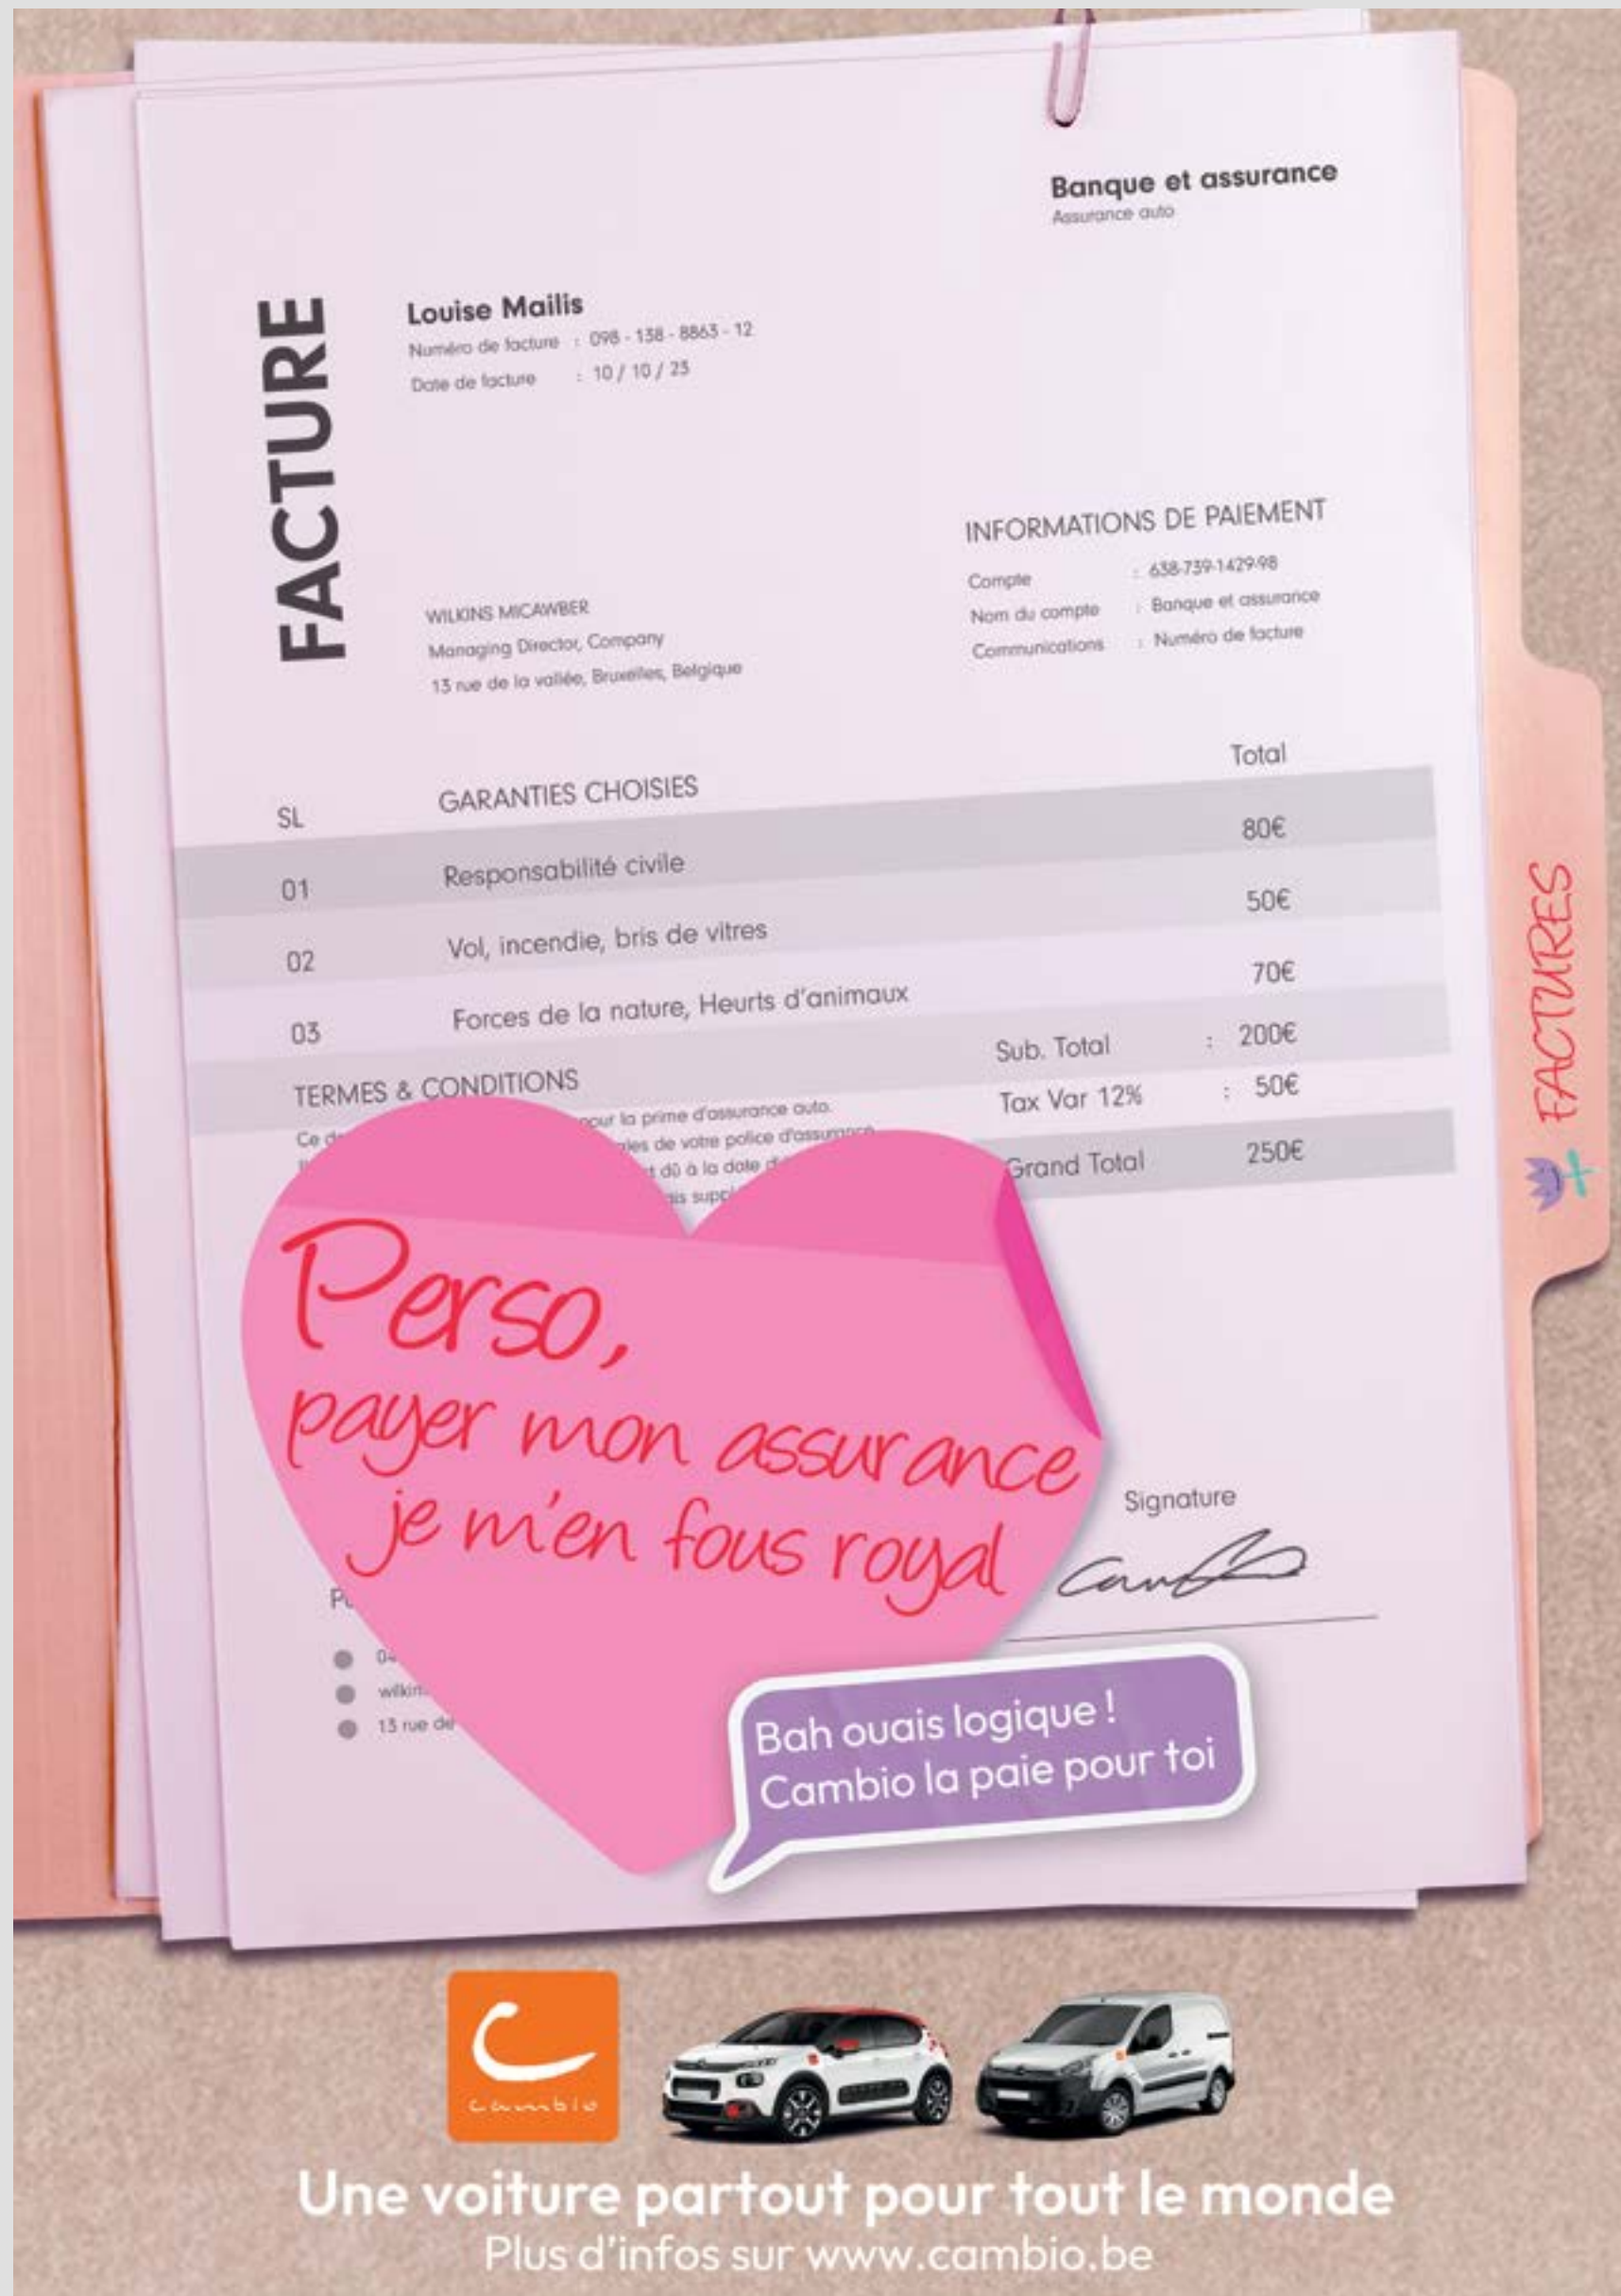 Banque et assurance
Assurance auto
FACTURE
Louise Mailis
Numéro de facture : 098 - 138 - 8863 - 12
Date de facture : 10 / 10 / 23
INFORMATIONS DE PAIEMENT
Compte : 638-739-1429-98
Nom du compte : Banque et assurance
Communications : Numéro de facture
WILKINS MICAWBER
Managing Director, Company
13 rue de la vallée, Bruxelles, Belgique
SL GARANTIES CHOISIES Total
01 Responsabilité civile 80€
02 Vol, incendie, bris de vitres 50€
03 Forces de la nature, Heurts d'animaux 70€
Sub. Total : 200€
Tax Var 12% : 50€
Grand Total 250€
TERMES & CONDITIONS
Ce pour la prime d'assurance auto.
de votre police d'assurance
dû à la date
FACTURES
Perso,
payer mon assurance
je m'en fous royal
Signature
13 rue de
Bah ouais logique !
Cambio la paie pour toi
cambio
Une voiture partout pour tout le monde
Plus d'infos sur www.cambio.be